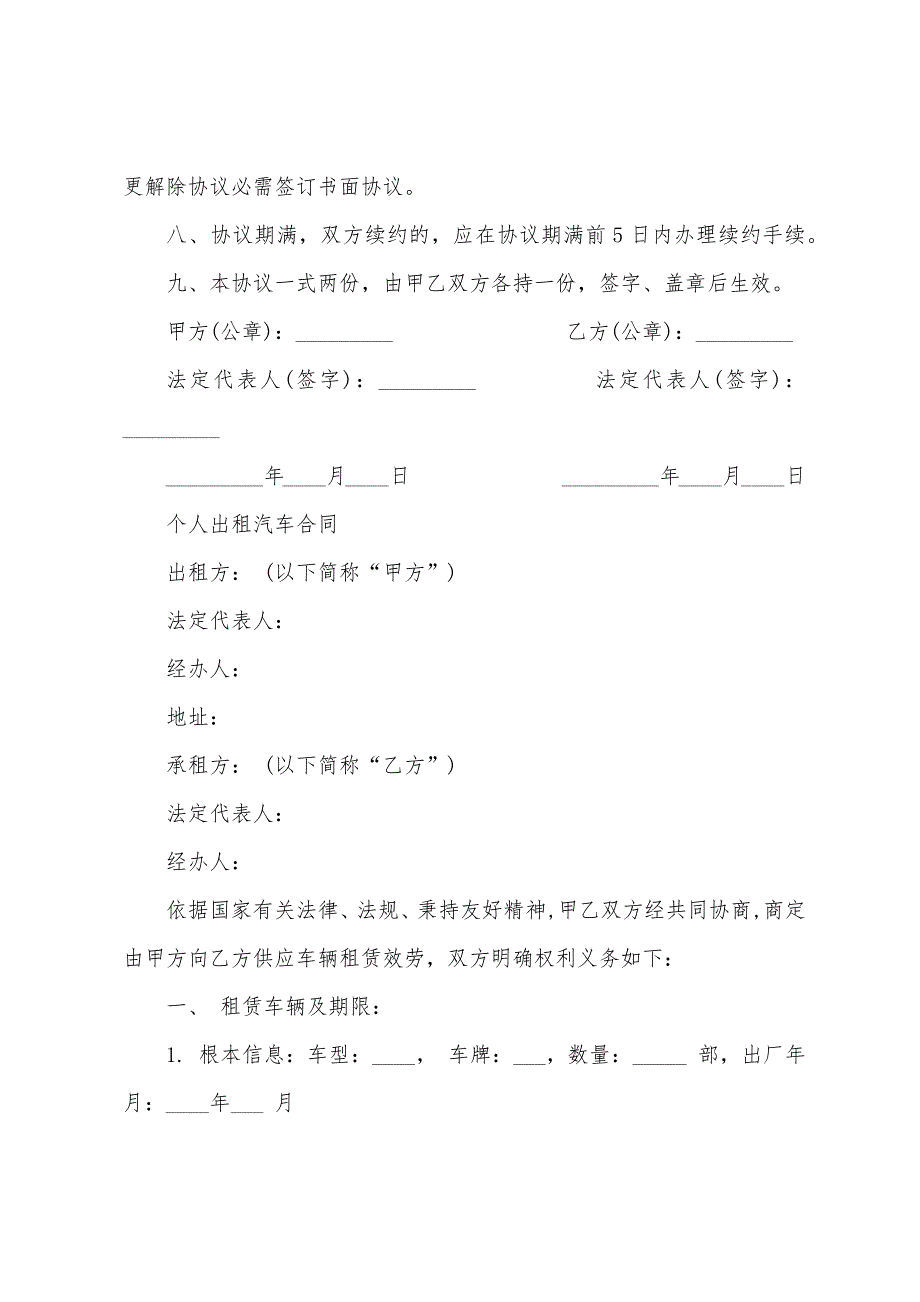 更解除协议必需签订书面协议。
八、协议期满，双方续约的，应在协议期满前5日内办理续约手续。
九、本协议一式两份，由甲乙双方各持一份，签字、盖章后生效。
甲方(公章)：_________ 乙方(公章)：_________
法定代表人(签字)：_________ 法定代表人(签字)：
_________
_________年____月____日 _________年____月____日
个人出租汽车合同
出租方： (以下简称“甲方”)
法定代表人：
经办人：
地址：
承租方： (以下简称“乙方”)
法定代表人：
经办人：
依据国家有关法律、法规、秉持友好精神,甲乙双方经共同协商,商定
由甲方向乙方供应车辆租赁效劳，双方明确权利义务如下：
一、 租赁车辆及期限：
1. 根本信息：车型：____， 车牌：___，数量：_____ 部，出厂年
月：____年___ 月